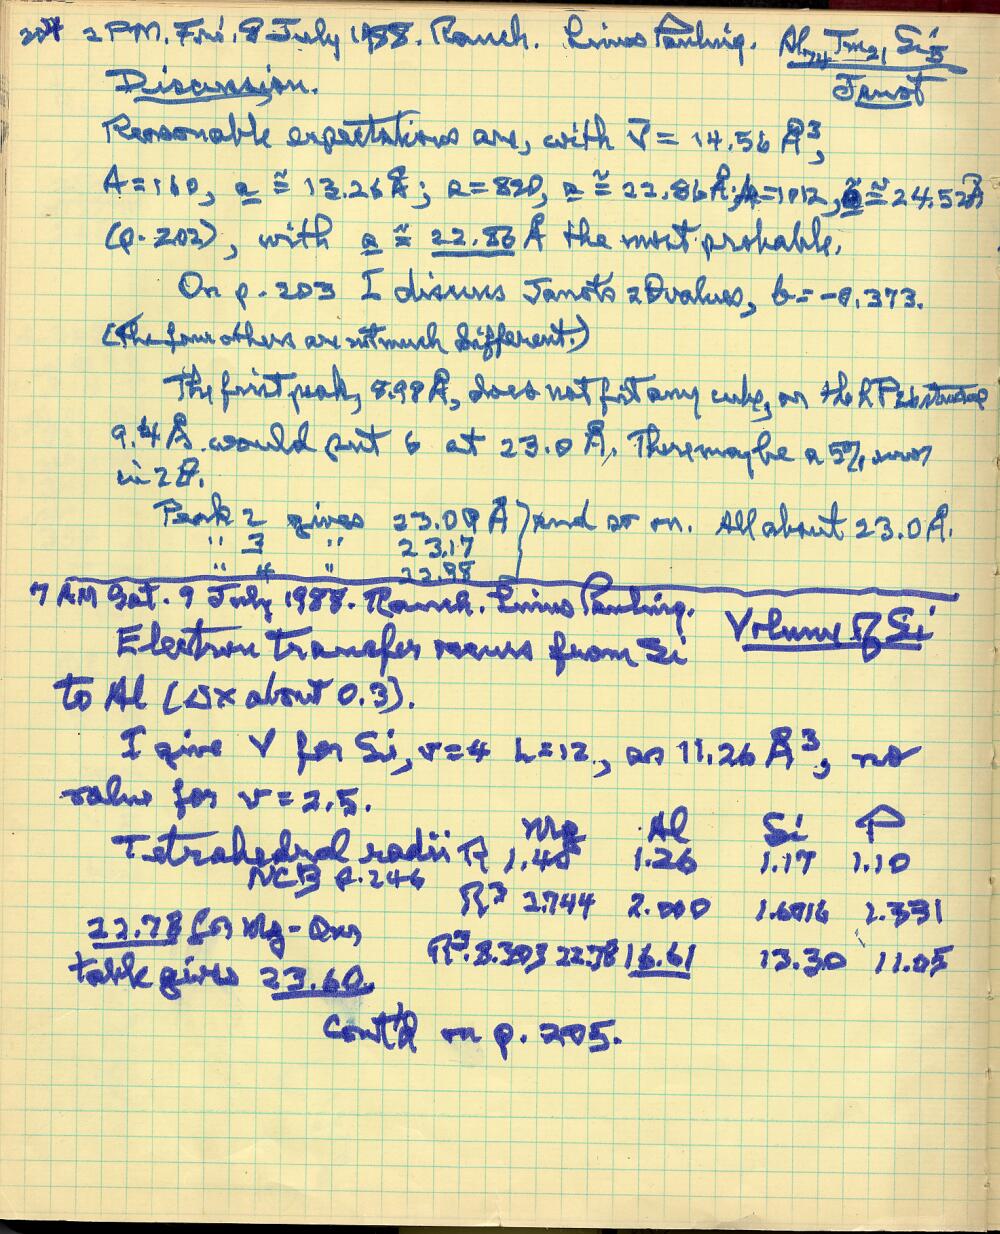 204 2 PM. Fri. 8 July 1988. Ranch. Linus Pauling. Al74 Tm21 Si5
Discussion. Janot
Reasonable expectations are, with V̄ = 14.56 Å³,
A=160, a ≅ 13.26Å; A=820, a ≅ 22.86Å; A=1012, a ≅ 24.52Å
(p. 202), with a ≅ 22.86 Å the most probable.
On p. 203 I discuss Janot's 2θ values, b = -0.373.
(The four others are not much different.)
The first peak, 8.98 Å, does not fit any cube, or the structure
9.4 Å would put 6 at 23.0 Å. There may be a 5% error
in 2θ.
Peak 2 gives 23.09 Å } and so on. All about 23.0 Å.
" 3 " 23.17
" 4 " 22.98
7 AM Sat. 9 July 1988. Ranch. Linus Pauling. Volume of Si
Electron transfer occurs from Si
to Al (Δx about 0.3).
I give V for Si, v=4 L=12, as 11.26 Å³, no
value for v = 2.5.
Mg Al Si P
Tetrahedral radii R 1.40 1.26 1.17 1.10
NCB p. 246
R³ 2.744 2.000 1.6016 1.331
22.78 for Mg - Our
R³·8.303 22.78 16.61 13.30 11.05
table gives 23.60.
Cont'd on p. 205.